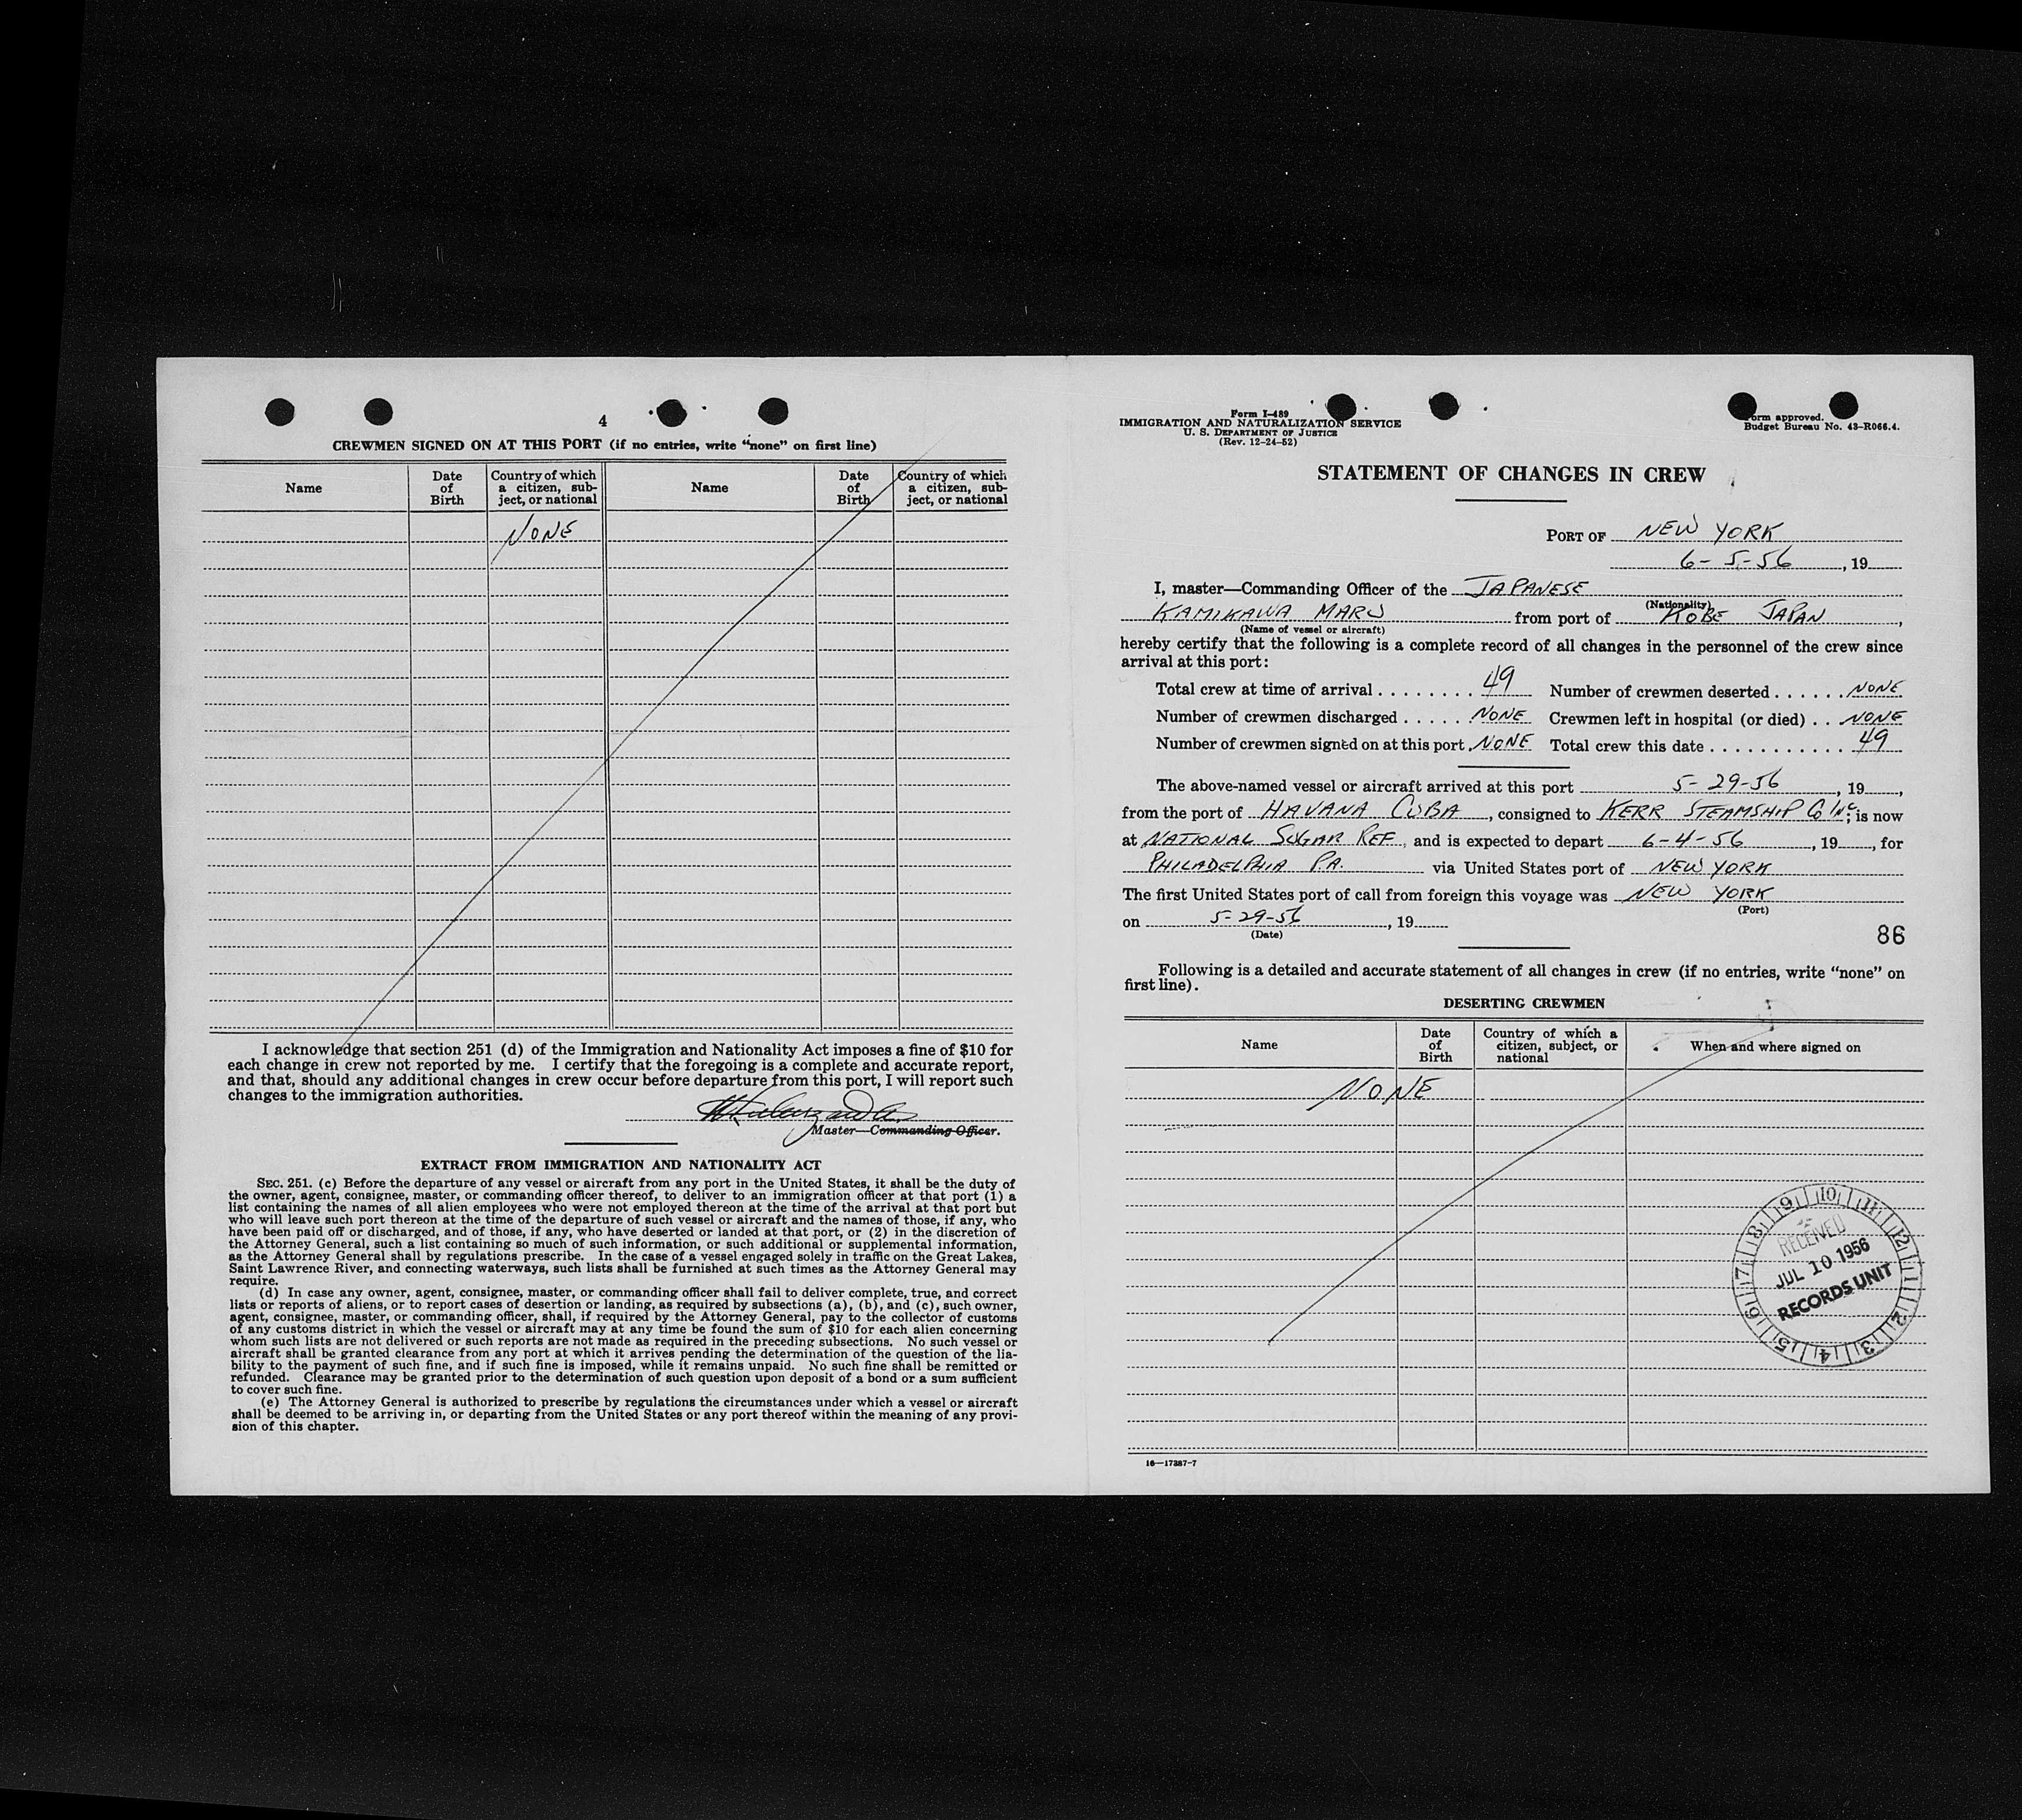 4
CREWMEN SIGNED ON AT THIS PORT (if no entries, write "none" on first line)
Name
Date of Birth
Country of which a citizen, subject, or national
Name
Date of Birth
Country of which a citizen, subject, or national
NONE
I acknowledge that section 251 (d) of the Immigration and Nationality Act imposes a fine of $10 for
each change in crew not reported by me. I certify that the foregoing is a complete and accurate report,
and that, should any additional changes in crew occur before departure from this port, I will report such
changes to the immigration authorities.
Master—Commanding Officer.
EXTRACT FROM IMMIGRATION AND NATIONALITY ACT
SEC. 251. (c) Before the departure of any vessel or aircraft from any port in the United States, it shall be the duty of
the owner, agent, consignee, master, or commanding officer thereof, to deliver to an immigration officer at that port (1) a
list containing the names of all alien employees who were not employed thereon at the time of the arrival at that port but
who will leave such port thereon at the time of the departure of such vessel or aircraft and the names of those, if any, who
have been paid off or discharged, and of those, if any, who have deserted or landed at that port, or (2) in the discretion of
the Attorney General, such a list containing so much of such information, or such additional or supplemental information,
as the Attorney General shall by regulations prescribe. In the case of a vessel engaged solely in traffic on the Great Lakes,
Saint Lawrence River, and connecting waterways, such lists shall be furnished at such times as the Attorney General may
require.
(d) In case any owner, agent, consignee, master, or commanding officer shall fail to deliver complete, true, and correct
lists or reports of aliens, or to report cases of desertion or landing, as required by subsections (a), (b), and (c), such owner,
agent, consignee, master, or commanding officer, shall, if required by the Attorney General, pay to the collector of customs
of any customs district in which the vessel or aircraft may at any time be found the sum of $10 for each alien concerning
whom such lists are not delivered or such reports are not made as required in the preceding subsections. No such vessel or
aircraft shall be granted clearance from any port at which it arrives pending the determination of the question of the lia-
bility to the payment of such fine, and if such fine is imposed, while it remains unpaid. No such fine shall be remitted or
refunded. Clearance may be granted prior to the determination of such question upon deposit of a bond or a sum sufficient
to cover such fine.
(e) The Attorney General is authorized to prescribe by regulations the circumstances under which a vessel or aircraft
shall be deemed to be arriving in, or departing from the United States or any port thereof within the meaning of any provi-
sion of this chapter.
Form I-489
IMMIGRATION AND NATURALIZATION SERVICE
U. S. DEPARTMENT OF JUSTICE
(Rev. 12-24-52)
orm approved.
Budget Bureau No. 43-R066.4.
STATEMENT OF CHANGES IN CREW
PORT OF NEW YORK
6-5-56, 19
I, master—Commanding Officer of the JAPANESE
(Nationality)
KAMIKAWA MARU from port of KOBE JAPAN,
(Name of vessel or aircraft)
hereby certify that the following is a complete record of all changes in the personnel of the crew since
arrival at this port:
Total crew at time of arrival ........ 49 Number of crewmen deserted ...... NONE
Number of crewmen discharged ..... NONE Crewmen left in hospital (or died) .. NONE
Number of crewmen signed on at this port. NONE Total crew this date ........... 49
The above-named vessel or aircraft arrived at this port 5-29-56, 19,
from the port of HAVANA CUBA, consigned to KERR STEAMSHIP Co INC; is now
at NATIONAL SUGAR REF, and is expected to depart 6-4-56, 19, for
PHILADELPHIA PA. via United States port of NEW YORK
The first United States port of call from foreign this voyage was NEW YORK
(Port)
on 5-29-56, 19
(Date)
86
Following is a detailed and accurate statement of all changes in crew (if no entries, write "none" on
first line).
DESERTING CREWMEN
Name
Date of Birth
Country of which a citizen, subject, or national
When and where signed on
NONE
9 10 11 12 1 2 3 4 5 6 7 8
RECEIVED
JUL 10 1956
RECORDS UNIT
16—17387-7